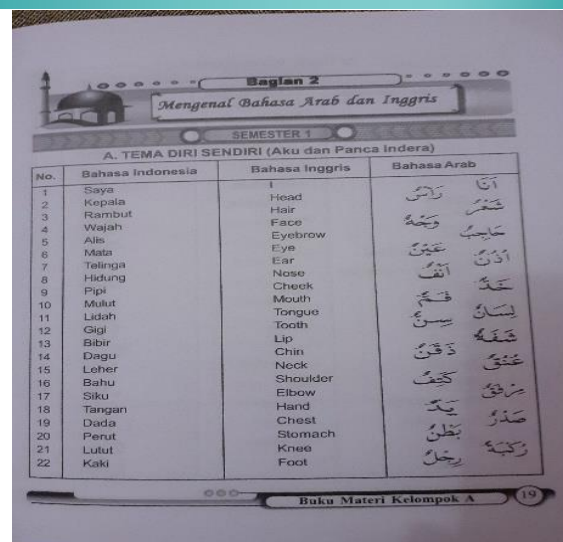 Bagian 2
Mengenal Bahasa Arab dan Inggris
SEMESTER 1
A. TEMA DIRI SENDIRI (Aku dan Panca Indera)
No. Bahasa Indonesia Bahasa Inggris Bahasa Arab
1 Saya I أَنَا
2 Kepala Head رَأْسٌ
3 Rambut Hair شَعْرٌ
4 Wajah Face وَجْهٌ
5 Alis Eyebrow حَاجِبٌ
6 Mata Eye عَيْنٌ
7 Telinga Ear أُذُنٌ
8 Hidung Nose أَنْفٌ
9 Pipi Cheek خَدٌّ
10 Mulut Mouth فَمٌ
11 Lidah Tongue لِسَانٌ
12 Gigi Tooth سِنٌّ
13 Bibir Lip شَفَةٌ
14 Dagu Chin ذَقَنٌ
15 Leher Neck عُنُقٌ
16 Bahu Shoulder كَتِفٌ
17 Siku Elbow مِرْفَقٌ
18 Tangan Hand يَدٌ
19 Dada Chest صَدْرٌ
20 Perut Stomach بَطْنٌ
21 Lutut Knee رُكْبَةٌ
22 Kaki Foot رِجْلٌ
Buku Materi Kelompok A 19